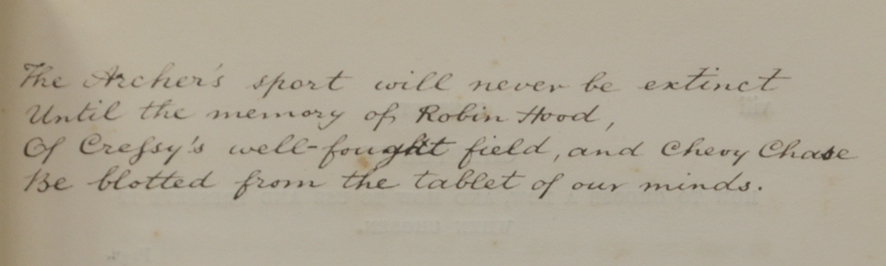 The Archer's sport will never be extinct
Until the memory of Robin Hood,
Of Cressy's well-fought field, and Chevy Chase
Be blotted from the tablet of our minds.